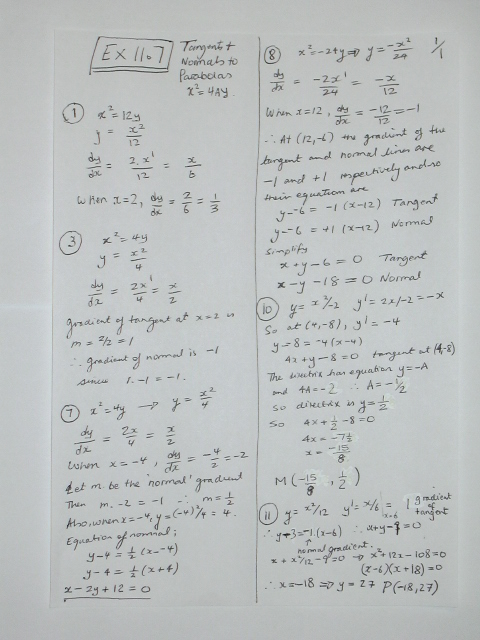 EX 11.7
Tangents +
Normals to
Parabolas
x² = 4Ay.
① x² = 12y
y = x²/12
dy/dx = 2x¹/12 = x/6
When x=2, dy/dx = 2/6 = 1/3
③ x² = 4y
y = x²/4
dy/dx = 2x¹/4 = x/2
gradient of tangent at x=2 is
m = 2/2 = 1
∴ gradient of normal is -1
since 1.-1 = -1.
⑦ x² = 4y → y = x²/4
dy/dx = 2x/4 = x/2
When x=-4, dy/dx = -4/2 = -2
Let m be the normal gradient
Then m.-2 = -1 ∴ m = 1/2
Also, when x=-4, y=(-4)²/4 = 4.
Equation of normal;
y-4 = 1/2 (x--4)
y-4 = 1/2 (x+4)
x-2y+12 = 0
⑧ x² = -24y ⇒ y = -x²/24
1/1
dy/dx = -2x¹/24 = -x/12
When x=12, dy/dx = -12/12 = -1
∴ At (12,-6) the gradient of the
tangent and normal lines are
-1 and +1 respectively and so
their equation are
y--6 = -1 (x-12) Tangent
y--6 = +1 (x-12) Normal
Simplify
x+y-6 = 0 Tangent
x-y-18 = 0 Normal
⑩ y = x²/-2 y' = 2x/-2 = -x
So at (4,-8), y' = -4
y--8 = -4(x-4)
4x+y-8 = 0 tangent at (4,-8)
The directrix has equation y=-A
and 4A=-2 ∴ A=-1/2
So directrix is y = 1/2
So 4x+1/2-8 = 0
4x = -7 1/2
x = -15/8
M(-15/8, 1/2)
⑪ y = x²/12 y' = x/6 |x=6 = 1 gradient of tangent
∴ y-3 = -1.(x-6) ∴ x+y-9 = 0
normal gradient.
x + x²/12 - 9 = 0 → x²+12x-108 = 0
(x-6)(x+18) = 0
∴ x=-18 ⇒ y = 27 P(-18,27)